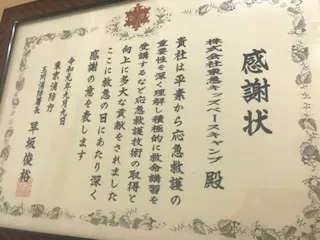 感謝状
株式会社東急キッズベースキャンプ 殿
貴社は平素から応急救護の
重要性を深く理解し積極的に救命講習を
受講するなど応急救護技術の取得と
向上に多大な貢献をされました
ここに救急の日にあたり深く
感謝の意を表します
令和元年九月九日
東京消防庁
玉川消防署長 早坂俊裕